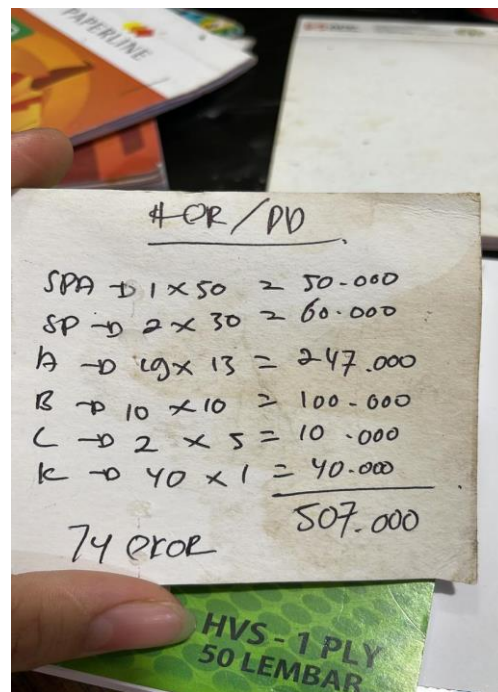 PAPERLINE
# OR / DD
SPA → 1 × 50 = 50.000
SP → 2 × 30 = 60.000
A → 19 × 13 = 247.000
B → 10 × 10 = 100.000
C → 2 × 5 = 10.000
K → 40 × 1 = 40.000
507.000
74 EKOR
HVS - 1 PLY
50 LEMBAR